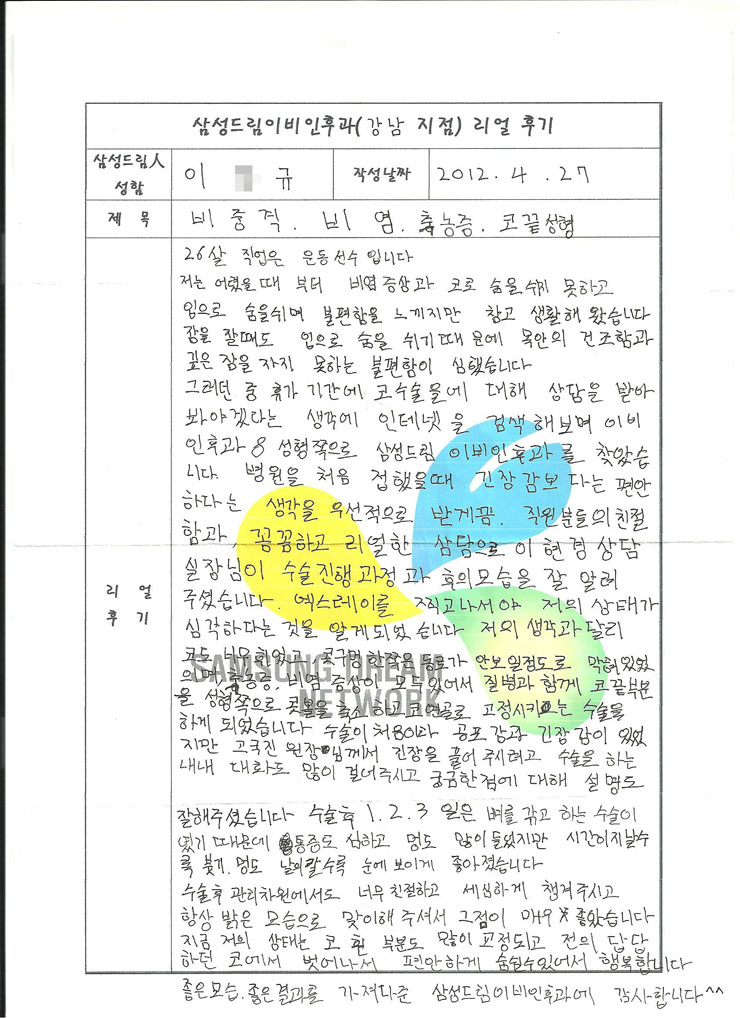 삼성드림이비인후과(강남 지점) 리얼 후기
삼성드림人
성함
이 규
작성날짜
2012. 4. 27
제 목
비중격. 비염. 축농증. 코끝성형
리 얼
후 기
26살 직업은 운동선수 입니다
저는 어렸을때 부터 비염증상과 코로 숨을쉬지 못하고
입으로 숨을쉬며 불편함을 느끼지만 참고 생활해 왔습니다
잠을 잘때도 입으로 숨을 쉬기때문에 목안의 건조함과
깊은 잠을 자지 못하는 불편함이 심했습니다
그러던 중 휴가 기간에 코수술에 대해 상담을 받아
봐야겠다는 생각에 인터넷을 검색해보며 이비
인후과 & 성형쪽으로 삼성드림 이비인후과를 찾았습
니다. 병원을 처음 접했을때 긴장감보다는 편안
하다는 생각을 우선적으로 받게끔. 직원분들의친절
함과, 꼼꼼하고 리얼한 상담으로 이현경상담
실장님이 수술진행과정과 후의모습을 잘 알려
주셨습니다. 엑스레이를 찍고나서야 저의 상태가
심각하다는 것을 알게되었습니다 저의 생각과달리
코도 너무 휘었고 콧구멍한쪽은 통로가 안보일정도로 막혀있었
으며 축농증. 비염 증상이 모두있어서 질병과 함께 코끝부분
을 성형쪽으로 콧볼을 축소하고 코연골로 고정시키는 수술을
하게 되었습니다 수술이 처음이라 공포감과 긴장감이 있었
지만 고국진 원장님께서 긴장을 풀어주시려고 수술을 하는
내내 대화도 많이 걸어주시고 궁금한점에 대해 설명도
잘해주셨습니다 수술후 1.2.3 일은 뼈를 깎고 하는 수술이
였기 때문에 통증도 심하고 멍도 많이 들었지만 시간이지날수
록 붓기. 멍도 날이갈수록 눈에 보이게 좋아졌습니다
수술후 관리차원에서도 너무친절하고 세심하게 챙겨주시고
항상 밝은 모습으로 맞이해 주셔서 그점이 매우 좋았습니다
지금 저의 상태는 코 휜 부분도 많이 교정되고 전의 답답
하던 코에서 벗어나서 편안하게 숨쉴수있어서 행복합니다
좋은모습. 좋은결과를 가져다준 삼성드림이비인후과에 감사합니다^^
SAMSUNG DREAM
NETWORK